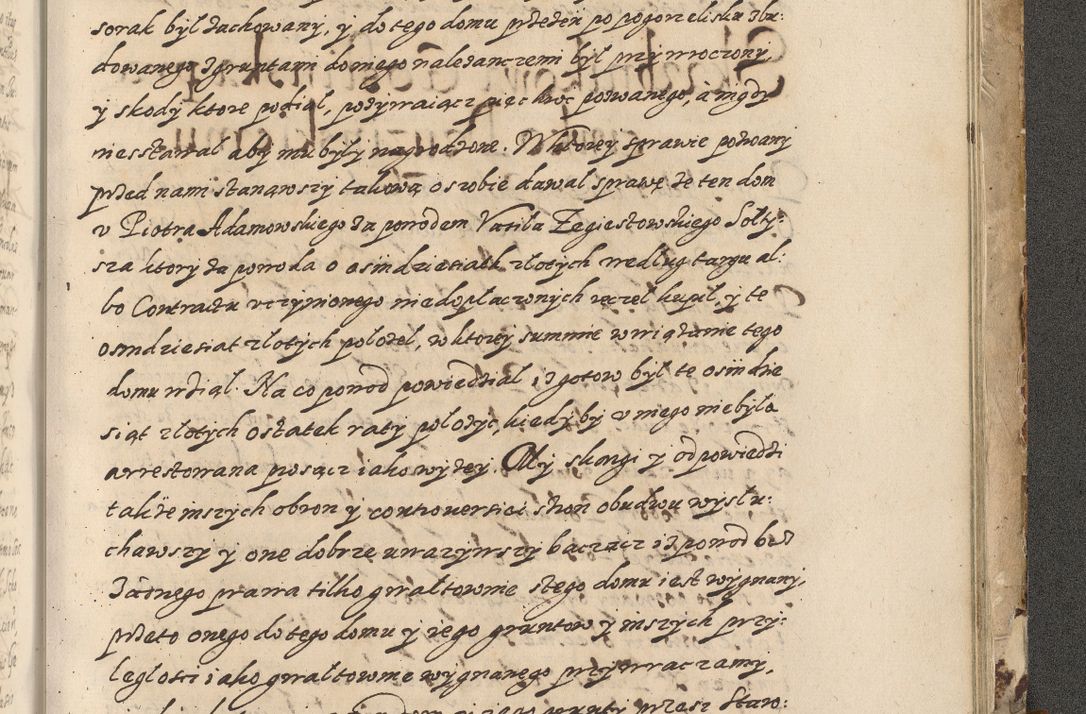 sorak był zachowany, y do tego domu przezeń po pogorzelisku zbu:
dowanego z gruntami do niego należanczemi był przywroczony,
y skody ktore podiął, pozywaiącz pięckroc pozwanego, a nigdy
nie stawał aby mu były nagrodzone. W ktorey sprawie pozwany
przed nami stanąwszy takową o sobie dawał sprawę że ten dom
v Piotra Adamowskiego za powodem Vasila Zegiestowskiego Sołty:
sza ktory za powoda o osmdziesiath złotych według targu al:
bo Contractu vczynionego niedopłaczonych ręczeł kupił, y te
osmdziesiat złotych położeł, w ktorey summie wwiązanie tego
domu wziął. Na co powod powiedział, iz gotow był te osmdzie
siąt złotych ostatek raty położyc, kiedy by v niego nie była
arrestowana posącz iako wyzey. My skargi y odpowiedzi
także inszych obron y controuersiei stron obudwu wysłu:
chawszy y one dobrze uwazywszy bacząc iz powod bez
żadnego prawa tilko gwałtownie stego domu iest wygnany,
przeto onego do tego domu y iego gruntow y inszych przy:
ległości iako gwałtownie wygnanego przywraczamy,